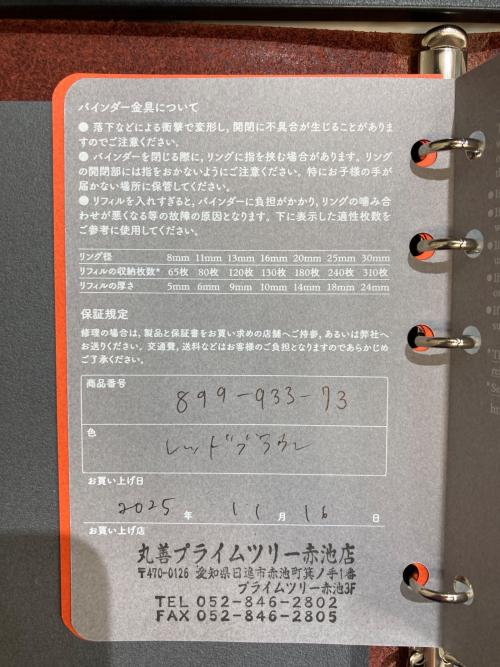 バインダー金具について
● 落下などによる衝撃で変形し、開閉に不具合が生じることがありま
すのでご注意ください。
● バインダーを閉じる際に、リングに指を挟む場合があります。リング
の開閉部には指をおかないようにご注意ください。特にお子様の手が
届かない場所に保管してください。
● リフィルを入れすぎると、バインダーに負担がかかり、リングの噛み合
わせが悪くなる等の故障の原因となります。下に表示した適性枚数を
ご参考に使用してください。
リング径 8mm 11mm 13mm 16mm 20mm 25mm 30mm
リフィルの収納枚数* 65枚 80枚 120枚 130枚 180枚 240枚 310枚
リフィルの厚さ 5mm 6mm 9mm 10mm 14mm 18mm 24mm
保証規定
修理の場合は、製品と保証書をお買い求めの店舗へご持参、あるいは弊社へ
お送りください。交通費、送料などはお客様のご負担となりますのであらかじめ
ご了承ください。
商品番号
899-933-73
色
レッドブラウン
お買い上げ日
2025 年 11 月 16 日
お買い上げ店
丸善プライムツリー赤池店
〒470-0126 愛知県日進市赤池町箕ノ手1番
プライムツリー赤池3F
TEL 052-846-2802
FAX 052-846-2805